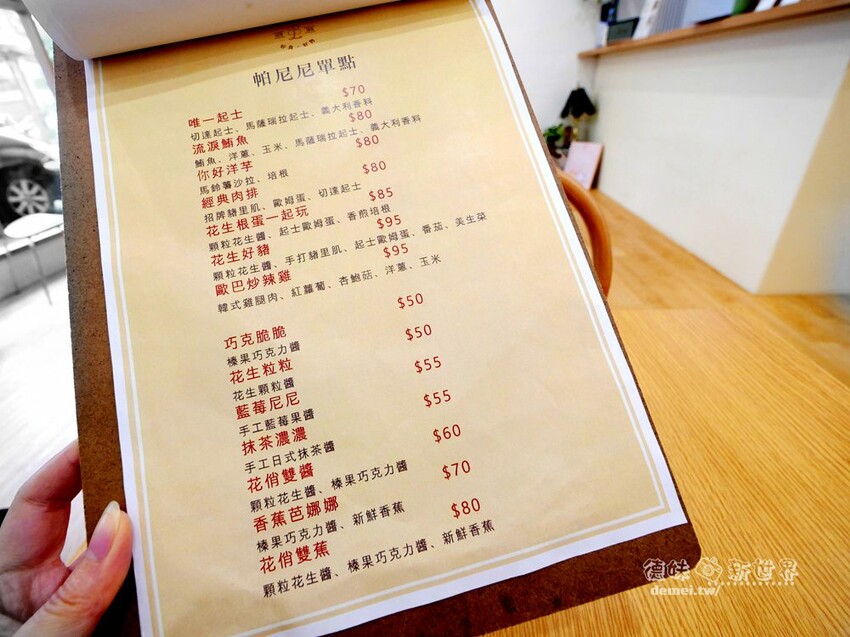 帕尼尼單點
唯一起士 $70
切達起士、馬薩瑞拉起士、義大利香料
流淚鮪魚 $80
鮪魚、洋蔥、玉米、馬薩瑞拉起士、義大利香料
你好洋芋 $80
馬鈴薯沙拉、培根
經典肉排 $80
招牌豬里肌、歐姆蛋、切達起士
花生根蛋一起玩 $85
顆粒花生醬、起士歐姆蛋、香煎培根
花生好豬 $95
顆粒花生醬、手打豬里肌、起士歐姆蛋、番茄、美生菜
歐巴炒辣雞 $95
韓式雞腿肉、紅蘿蔔、杏鮑菇、洋蔥、玉米
巧克脆脆 $50
榛果巧克力醬
花生粒粒 $50
花生顆粒醬
藍莓尼尼 $55
手工藍莓果醬
抹茶濃濃 $55
手工日式抹茶醬
花俏雙醬 $60
顆粒花生醬、榛果巧克力醬
香蕉芭娜娜 $70
榛果巧克力醬、新鮮香蕉
花俏雙蕉 $80
顆粒花生醬、榛果巧克力醬、新鮮香蕉
德味 新世界
demei.tw/